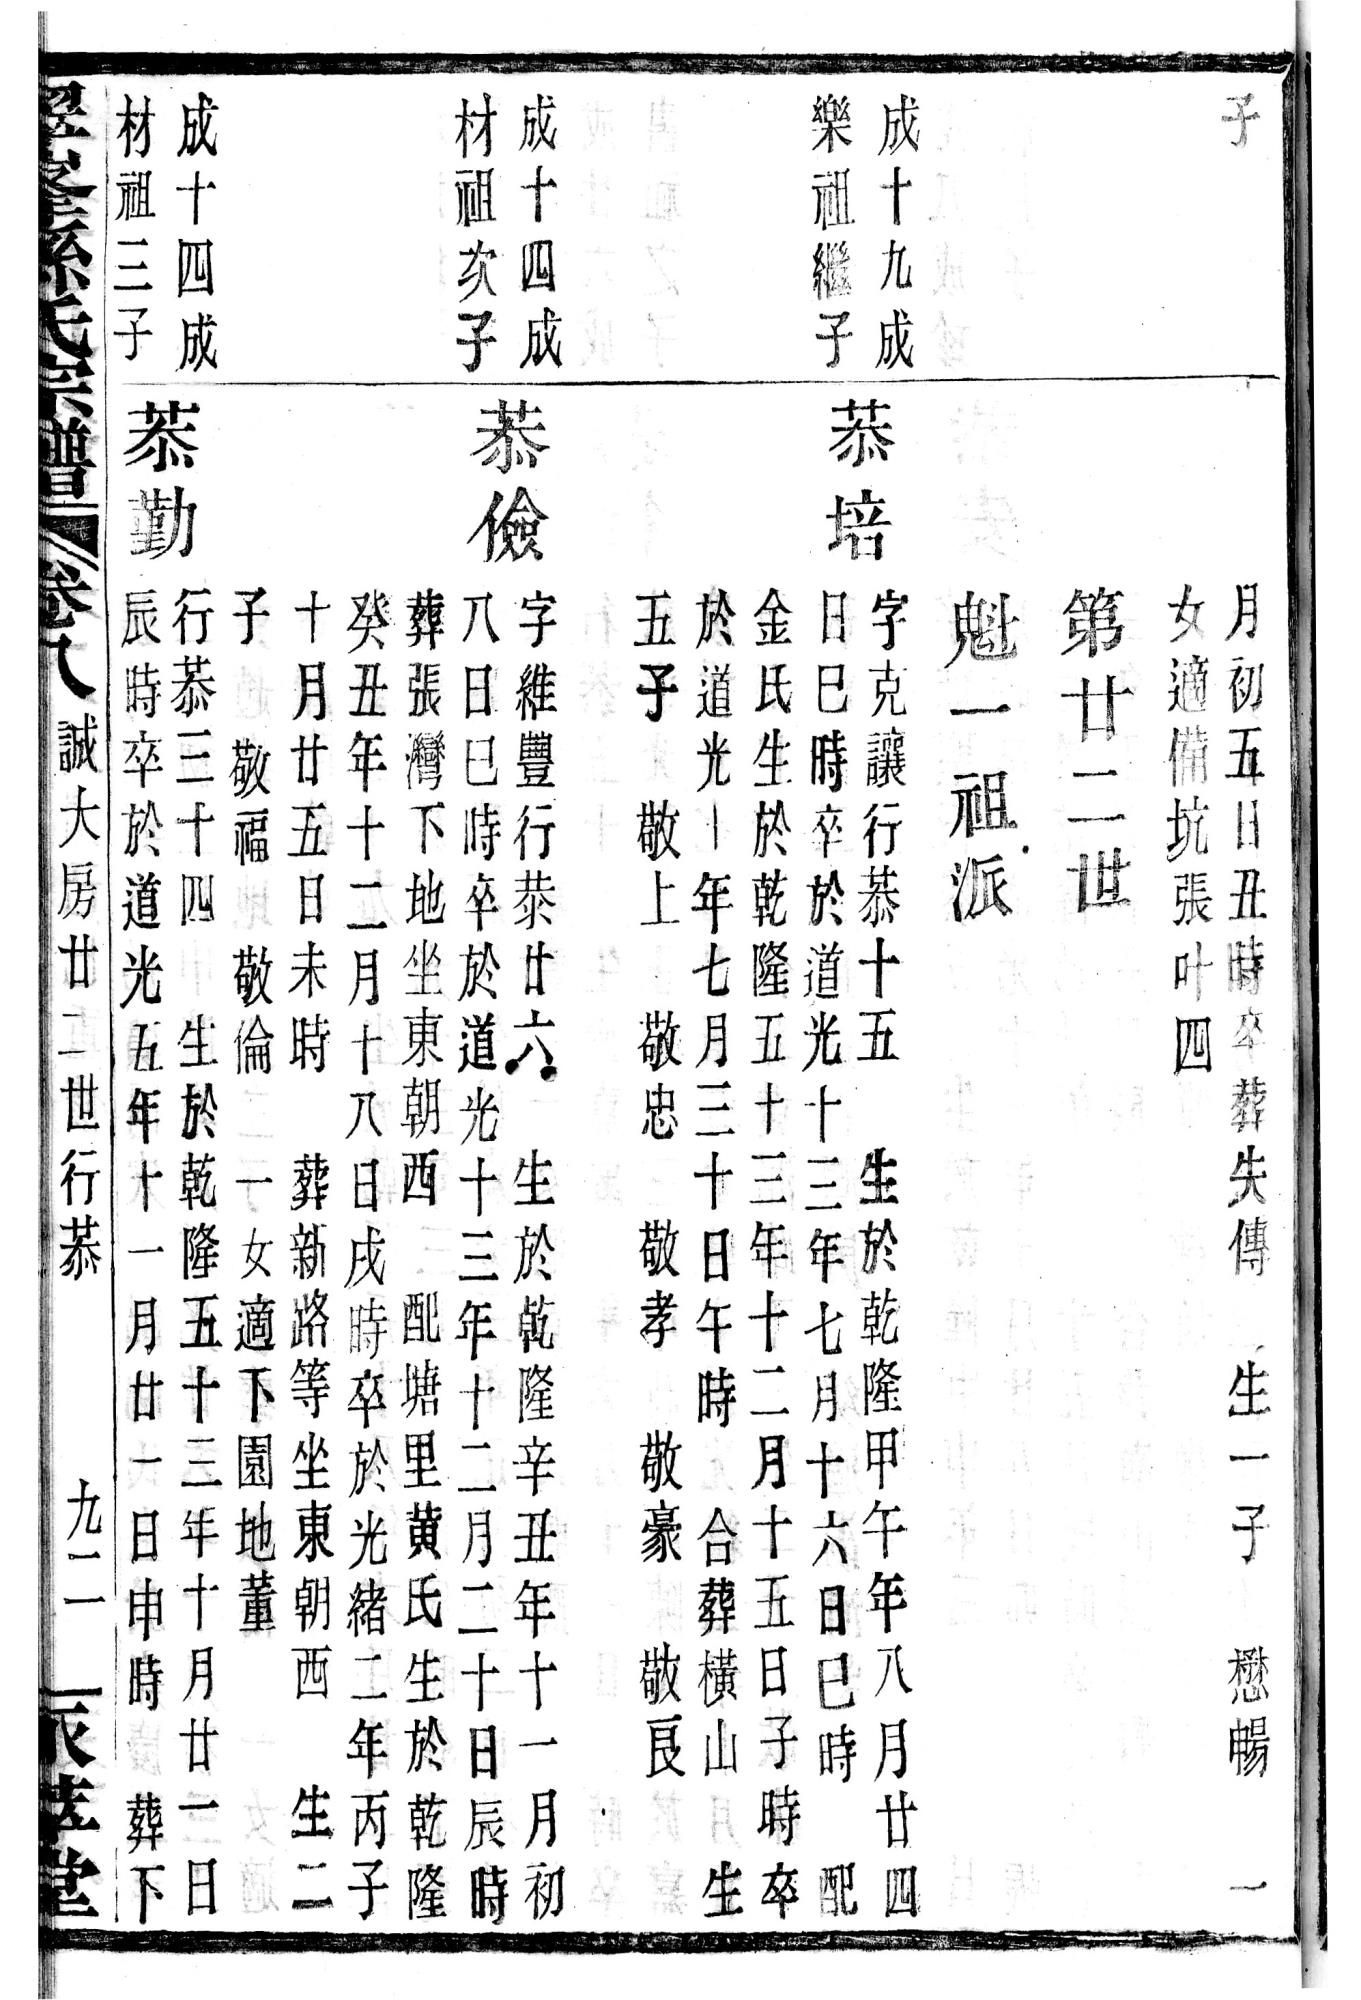 子
月初五日丑時卒葬失傳 生一子 懋暢 一
女適備坑張叶四
第廿二世
魁一祖派
成十九成
樂祖繼子
恭培
字克讓行恭十五 生於乾隆甲午年八月廿四
日巳時卒於道光十三年七月十六日巳時 配
金氏生於乾隆五十三年十二月十五日子時卒
於道光十年七月三十日午時 合葬橫山 生
五子 敬上 敬忠 敬孝 敬豪 敬良
成十四成
材祖次子
恭儉
字維豐行恭廿六 生於乾隆辛丑年十一月初
八日巳時卒於道光十三年十二月二十日辰時
葬張灣下地坐東朝西 配塘里黄氏生於乾隆
癸丑年十二月十八日戌時卒於光緒二年丙子
十月廿五日未時 葬新路等坐東朝西 生二
子 敬福 敬倫 一女適下園地董
成十四成
材祖三子
恭勤
行恭三十四 生於乾隆五十三年十月廿一日
辰時卒於道光五年十一月廿一日申時 葬下
孫氏宗譜 卷八 誠大房廿二世行恭 九二 萃堂